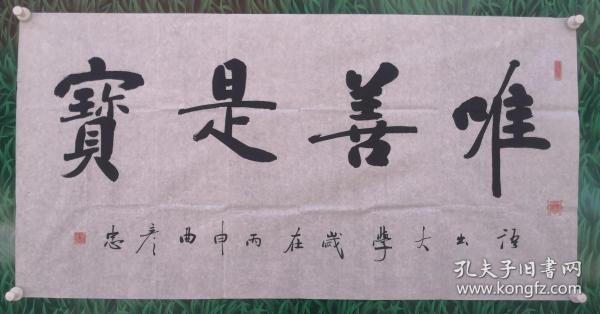 唯善是寶
語出大學歲在丙申曲彥忠
孔夫子旧书网
www.kongfz.com